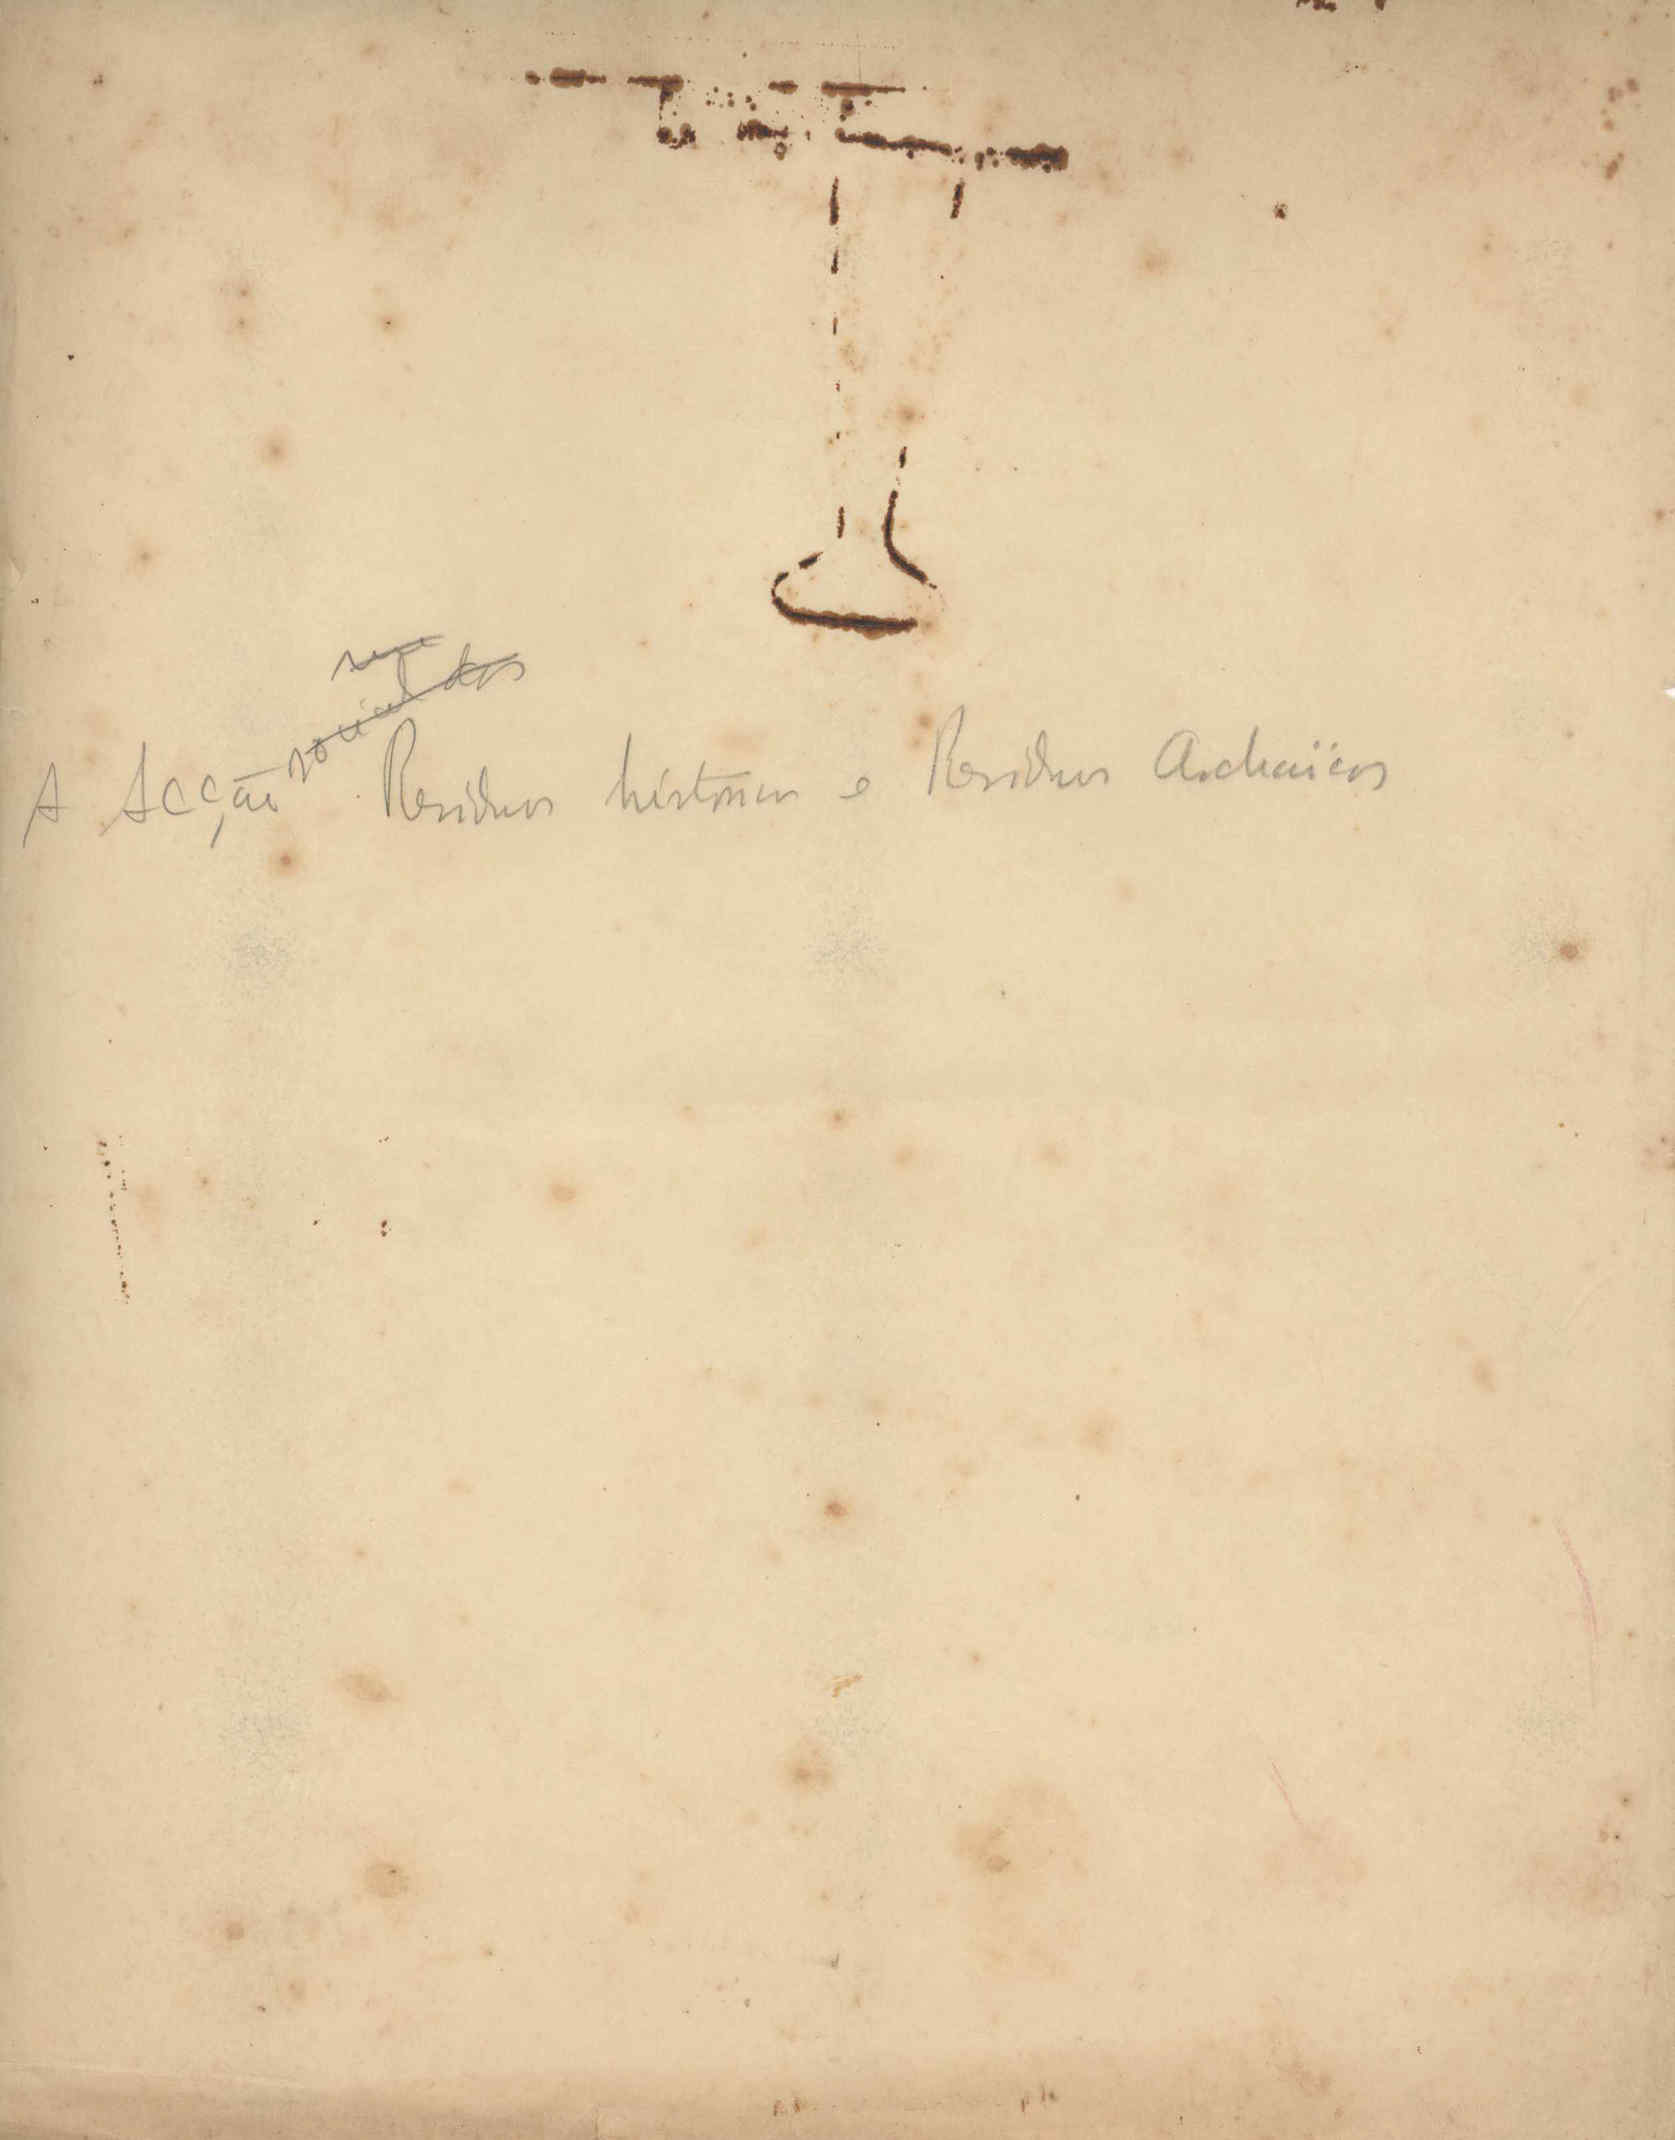 A Acção social dos Residuos historicos e Residuos Archaïcos